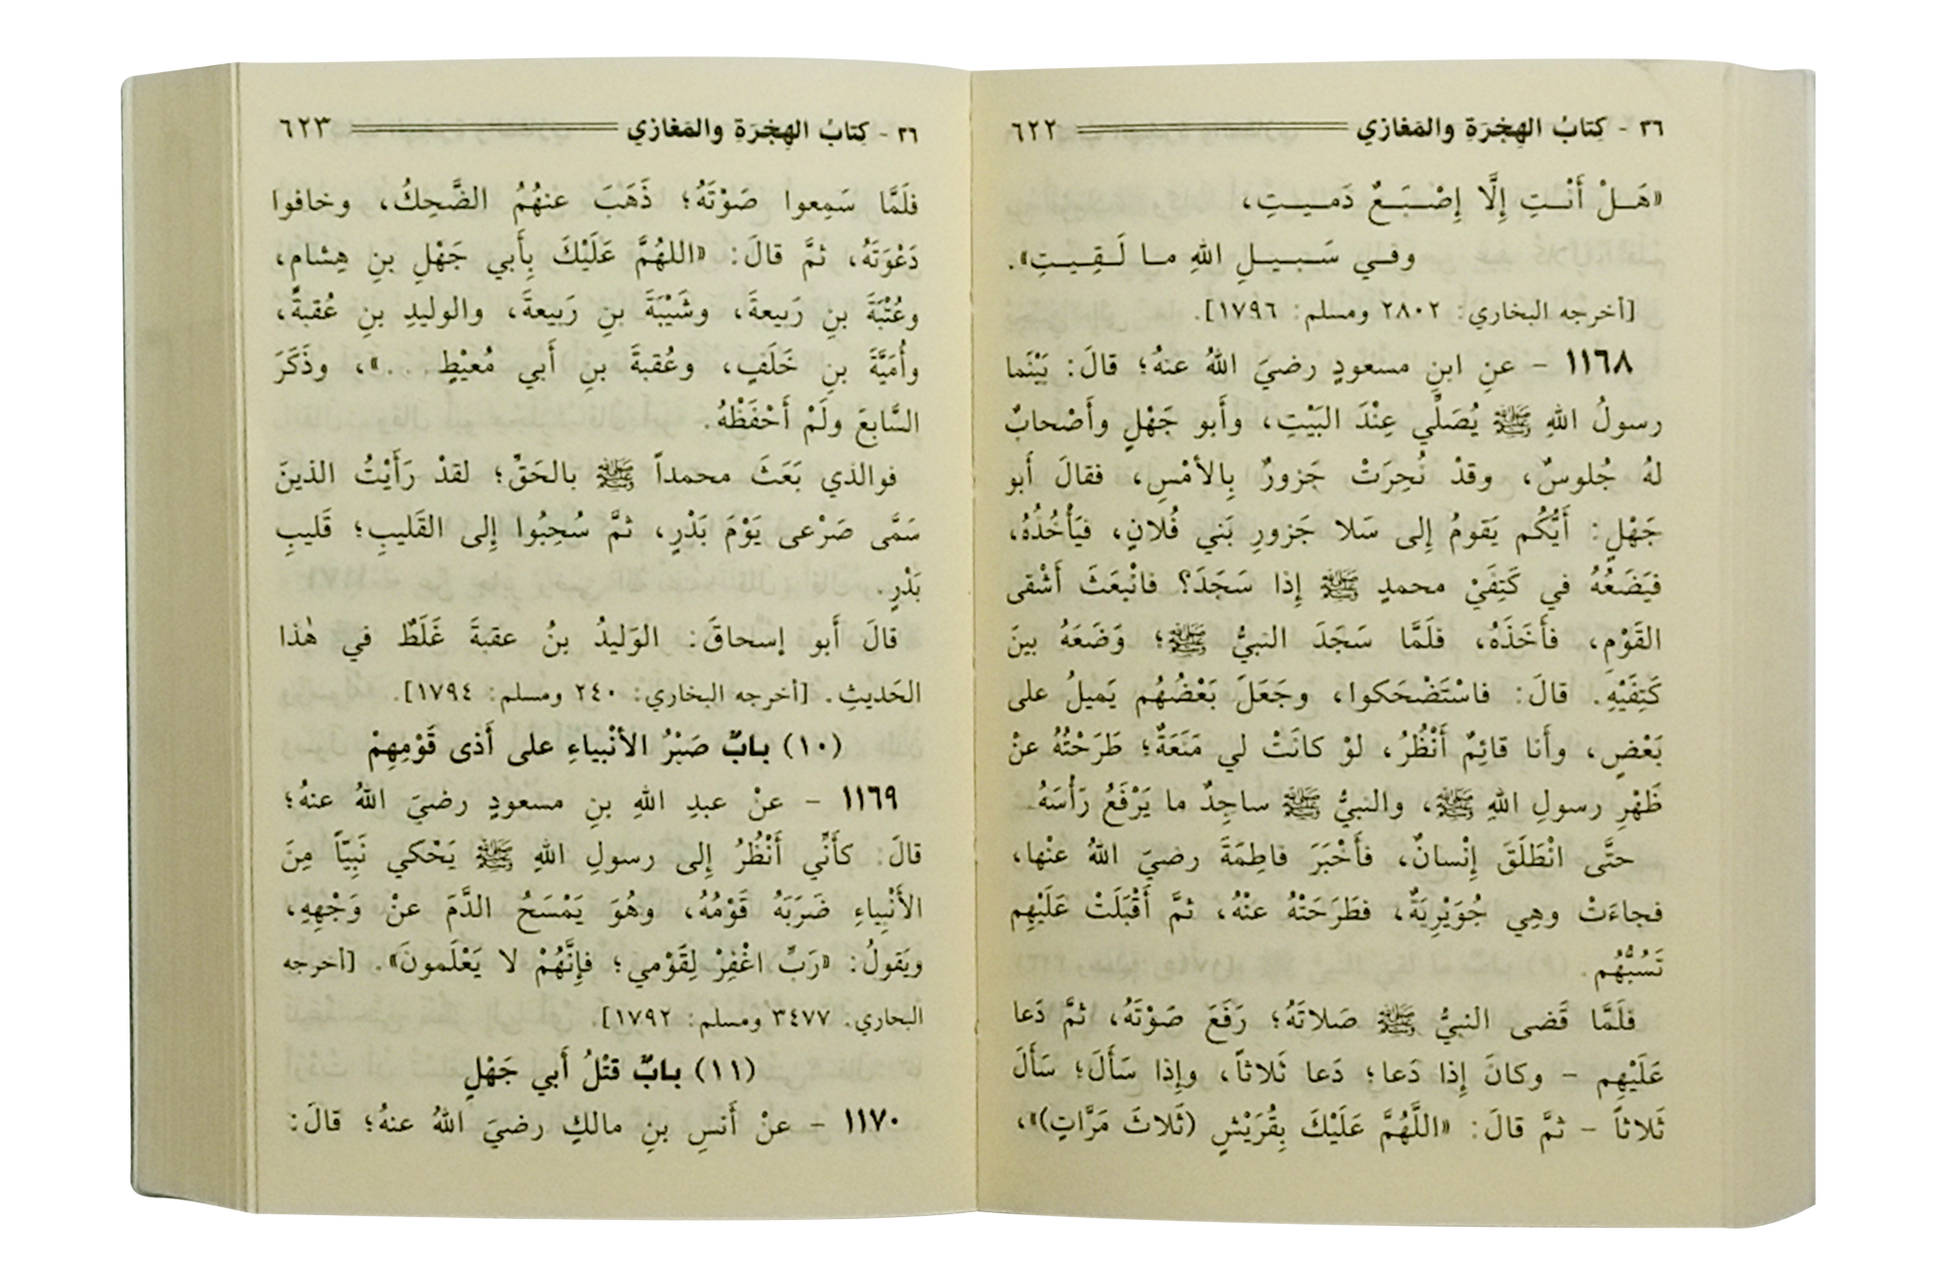 ٣٦ - كِتابُ الهِجْرَةِ والمَغازي ٦٢٢
«هَـلْ أَنْـتِ إِلَّا إِصْـبَـعٌ دَمـيـتِ،
وفـي سَـبـيـلِ اللهِ مـا لَـقِـيـتِ».
[أخرجه البخاري: ٢٨٠٢ ومسلم: ١٧٩٦].
١١٦٨ - عنِ ابنِ مسعودٍ رضيَ اللهُ عنهُ؛ قالَ: بَيْنَما
رسولُ اللهِ ﷺ يُصَلِّي عِنْدَ البَيْتِ، وأَبو جَهْلٍ وأَصْحابٌ
لهُ جُلوسٌ، وقدْ نُحِرَتْ جَزورٌ بِالأمْسِ، فقالَ أَبو
جَهْلٍ: أَيُّكُم يَقومُ إِلى سَلا جَزورِ بَني فُلانٍ، فيَأْخُذُهُ،
فيَضَعُهُ في كَتِفَيْ محمدٍ ﷺ إِذا سَجَدَ؟ فانْبعَثَ أَشْقى
القَوْمِ، فأَخَذَهُ، فلَمَّا سَجَدَ النبيُّ ﷺ؛ وَضَعَهُ بينَ
كَتِفَيْهِ. قالَ: فاسْتَضْحَكوا، وجَعَلَ بَعْضُهُم يَميلُ على
بَعْضٍ، وأَنا قائِمٌ أَنْظُرُ، لوْ كانَتْ لي مَنَعَةٌ؛ طَرَحْتُهُ عنْ
ظَهْرِ رسولِ اللهِ ﷺ، والنبيُّ ﷺ ساجِدٌ ما يَرْفَعُ رَأْسَهُ
حتَّى انْطَلَقَ إِنْسانٌ، فأَخْبَرَ فاطِمَةَ رضيَ اللهُ عنْها،
فجاءَتْ وهِي جُوَيْرِيَةٌ، فطَرَحَتْهُ عنْهُ، ثمَّ أَقْبَلَتْ عَلَيْهِم
تَسُبُّهُم.
فلَمَّا قَضى النبيُّ ﷺ صَلاتَهُ؛ رَفَعَ صَوْتَهُ، ثمَّ دَعا
عَلَيْهِم - وكانَ إِذا دَعا؛ دَعا ثَلاثاً، وإِذا سَأَلَ؛ سَأَلَ
ثَلاثاً - ثمَّ قالَ: «اللَّهُمَّ عَلَيْكَ بِقُرَيْشٍ (ثَلاثَ مَرَّاتٍ)»،
٣٦ - كِتابُ الهِجْرَةِ والمَغازي ٦٢٣
فلَمَّا سَمِعوا صَوْتَهُ؛ ذَهَبَ عنهُمُ الضَّحِكُ، وخافوا
دَعْوَتَهُ، ثمَّ قالَ: «اللهُمَّ عَلَيْكَ بِأَبي جَهْلِ بنِ هِشامٍ،
وعُتْبَةَ بنِ رَبيعةَ، وشَيْبَةَ بنِ رَبيعةَ، والوليدِ بنِ عُقبةَ،
وأُمَيَّةَ بنِ خَلَفٍ، وعُقبةَ بنِ أَبي مُعيْطٍ. . .»، وذَكَرَ
السَّابعَ ولَمْ أَحْفَظْهُ.
فوالذي بَعَثَ محمداً ﷺ بالحَقِّ؛ لقدْ رَأَيْتُ الذينَ
سَمَّى صَرْعى يَوْمَ بَدْرٍ، ثمَّ سُحِبُوا إِلى القَليبِ؛ قَليبِ
بَدْرٍ.
قالَ أَبو إسحاقَ: الوَليدُ بنُ عقبةَ غَلَطٌ في هٰذا
الحَديثِ. [أخرجه البخاري: ٢٤٠ ومسلم: ١٧٩٤].
(١٠) بابٌ صَبْرُ الأنْبياءِ على أَذى قَوْمِهِمْ
١١٦٩ - عنْ عبدِ اللهِ بنِ مسعودٍ رضيَ اللهُ عنهُ؛
قالَ: كأَنِّي أَنْظُرُ إِلى رسولِ اللهِ ﷺ يَحْكي نَبِيّاً مِنَ
الأَنْبِياءِ ضَرَبَهُ قَوْمُهُ، وهُوَ يَمْسَحُ الدَّمَ عنْ وَجْهِهِ،
ويَقولُ: «رَبِّ اغْفِرْ لِقَوْمي؛ فإِنَّهُمْ لا يَعْلَمونَ». [أخرجه
البخاري: ٣٤٧٧ ومسلم: ١٧٩٢].
(١١) بابٌ قتْلُ أَبي جَهْلٍ
١١٧٠ - عنْ أَنسِ بنِ مالكٍ رضيَ اللهُ عنهُ؛ قالَ: